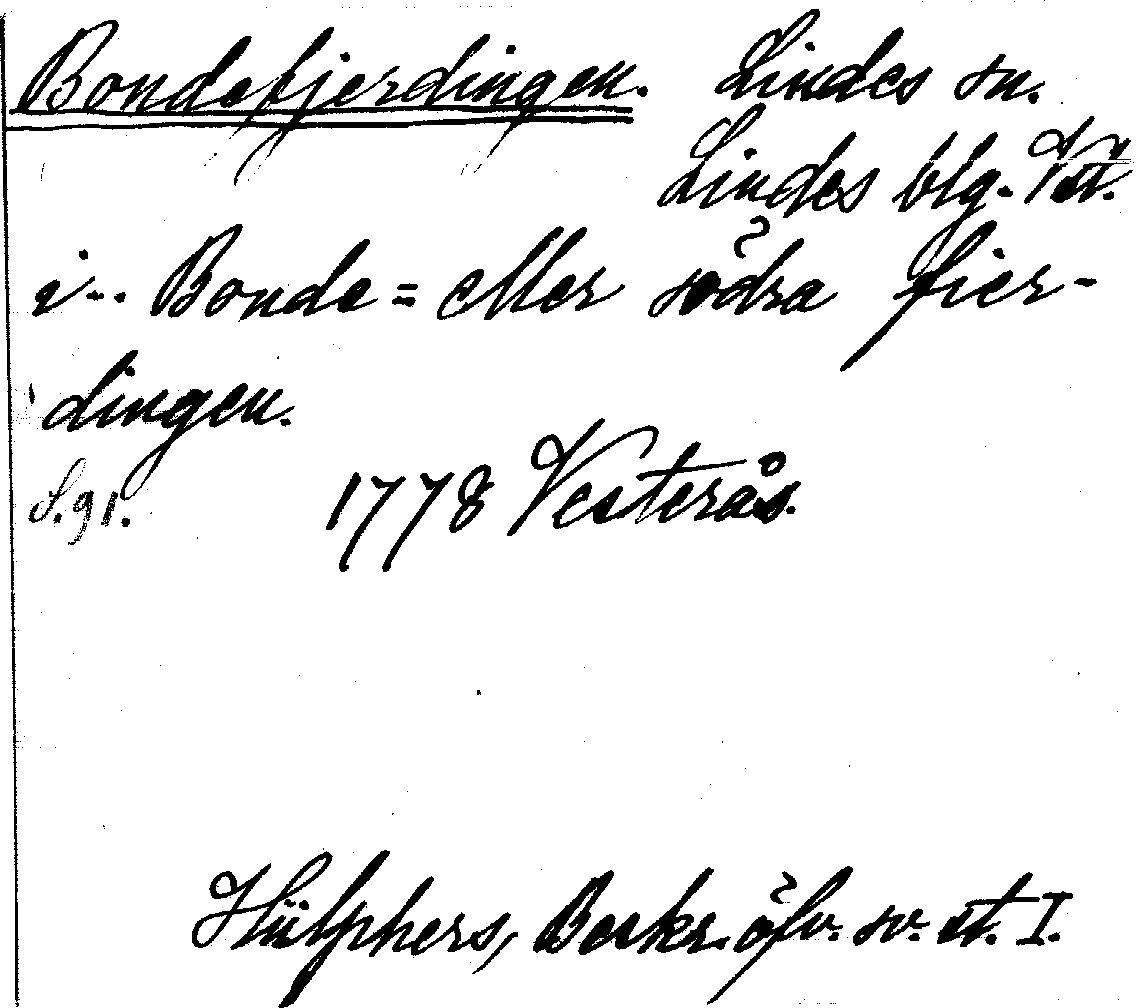 Bondefjerdingen. Lindes sn.
Lindes blg. Vstl.
i-. Bonde= eller södra fier-
dingen.
S. 91. 1778 Vesterås.
Hülphers, Beskr. öfv. sv. st. I.